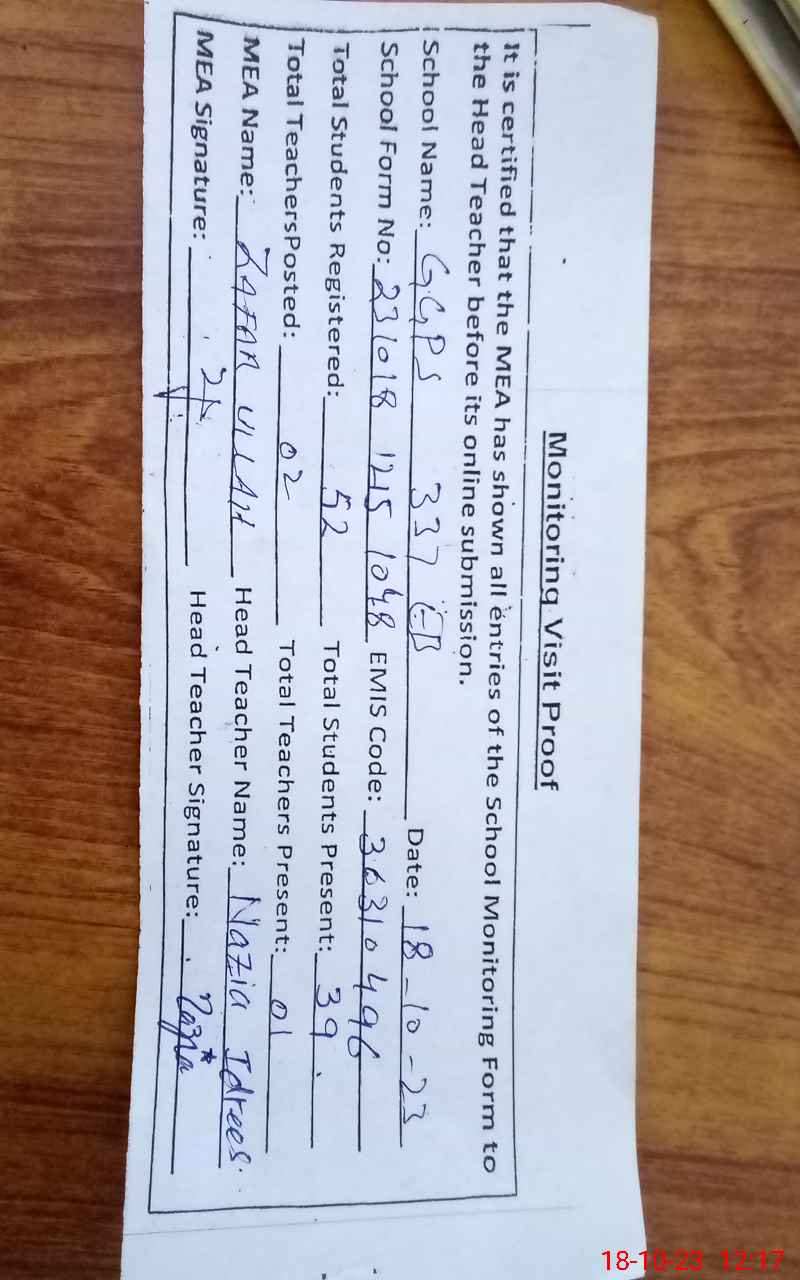 Monitoring Visit Proof
It is certified that the MEA has shown all entries of the School Monitoring Form to
the Head Teacher before its online submission.
School Name: GGPS 337 EB Date: 18-10-23
School Form No: 231018 1215 1048 EMIS Code: 36310496
Total Students Registered: 52 Total Students Present: 39
Total TeachersPosted: 02 Total Teachers Present: 01
MEA Name: ZAFAR ULLAH Head Teacher Name: Nazia Idrees
MEA Signature: Head Teacher Signature: Nazia
18-10-23 12:17